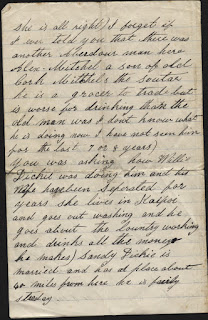 she is all right) I forget if
I ever told you that there was
another Aberdour man here
Alex Mitchel a son of old
Cork Mitchel's the soutar
he is a grocer to trade but
is worse for drinking than the
old man was I dont know what
he is doing now I have not seen him
for the last 7 or 8 years)
you was asking how Willie
Dickie was doing him and his
wife has been Seperated for
years she lives in
and goes out washing and he
goes about the Country working
and drinks all the money
he makes) Sandy Dickie is
married and has a place about
40 miles from here he is fairly
steady